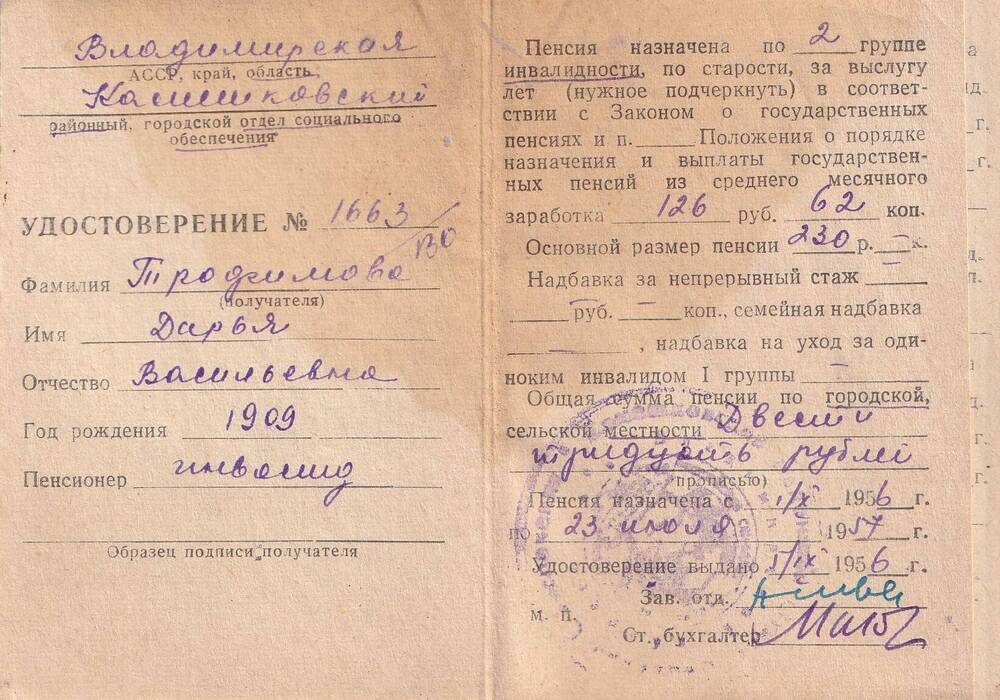 Владимирская
АССР, край, область
Камешковский
районный, городской отдел социального
обеспечения
УДОСТОВЕРЕНИЕ № 1663/
Фамилия Трофимова
(получателя)
Имя Дарья
Отчество Васильевна
Год рождения 1909
Пенсионер инвалид
Образец подписи получателя
Пенсия назначена по 2 группе
инвалидности, по старости, за выслугу
лет (нужное подчеркнуть) в соответ-
ствии с Законом о государственных
пенсиях и п. Положения о порядке
назначения и выплаты государствен-
ных пенсий из среднего месячного
заработка 126 руб. 62 коп.
Основной размер пенсии 230 р. — к.
Надбавка за непрерывный стаж —
руб. — коп., семейная надбавка
— , надбавка на уход за оди-
ноким инвалидом I группы —
Общая сумма пенсии по городской,
сельской местности Двести
тридцать рублей
(прописью)
Пенсия назначена с 1/IX 1956 г.
по 23 июля 1957 г.
Удостоверение выдано 1/IX 1956 г.
Зав. отд.
м. п.
Ст. бухгалтер